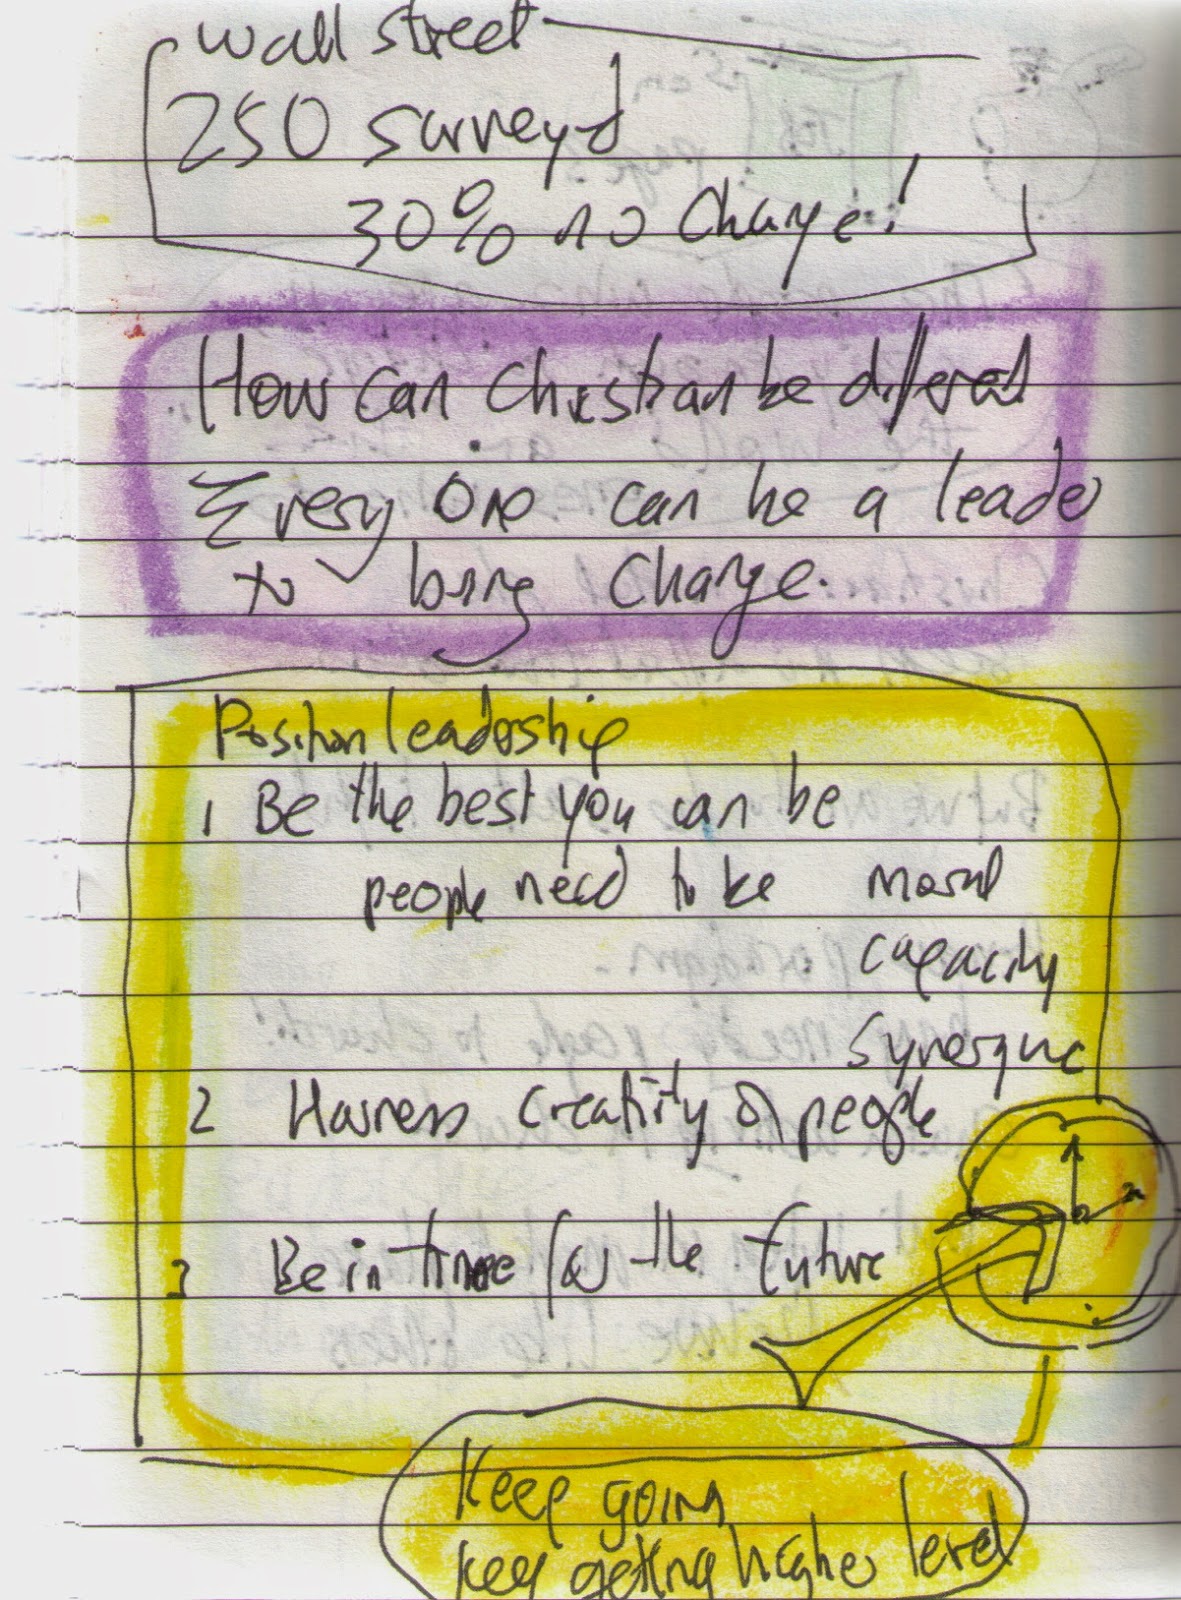 Wall street
250 surveyd
30% no Change!
How can Christian be different
Every one can be a leader
to bring Change.
Position leadership
1 Be the best you can be
people need to be moral
capacity
2 Harness creativity of people
3 Be in time for the future
Keep going
keep getting higher level